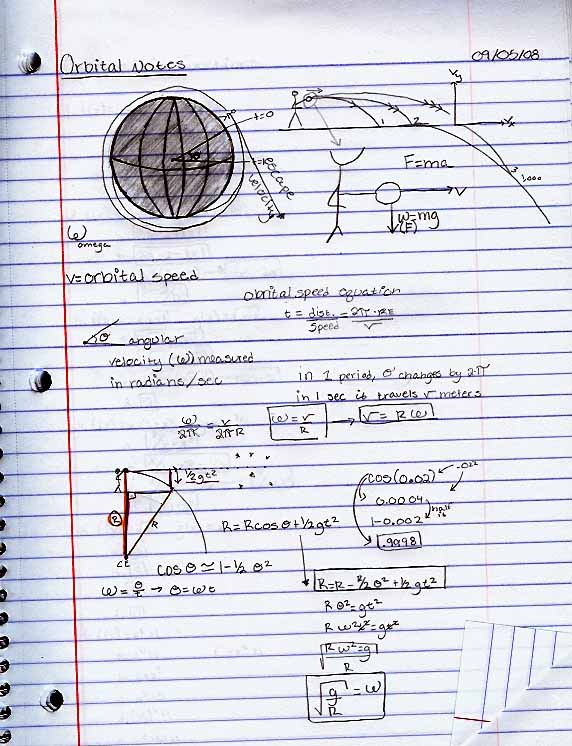 Orbital Notes
09/05/08
t=0
t=1
escape
velocity
1
2
Vy
Vx
3
1,000
F=ma
V
w=mg
(F)
ω
omega
V=orbital speed
obrital speed equation
t = dist./Speed = 2π·RE/V
θ angular
velocity (ω) measured
in radians/sec
in 1 period, θ changes by 2π
in 1 sec it travels v meters
ω/2π = V/2πR
ω=V/R → V=Rω
B
A
1/2gt²
R
R
CE
R=Rcosθ+1/2gt²
cos(0.02)
.02²
0.0004
half it
1-0.002
.9998
cosθ≃1-1/2θ²
ω=θ/t → θ=ωt
R=R-R/2θ²+1/2gt²
Rθ²=gt²
Rω²t²=gt²
Rω²=g
R
√g/R=ω